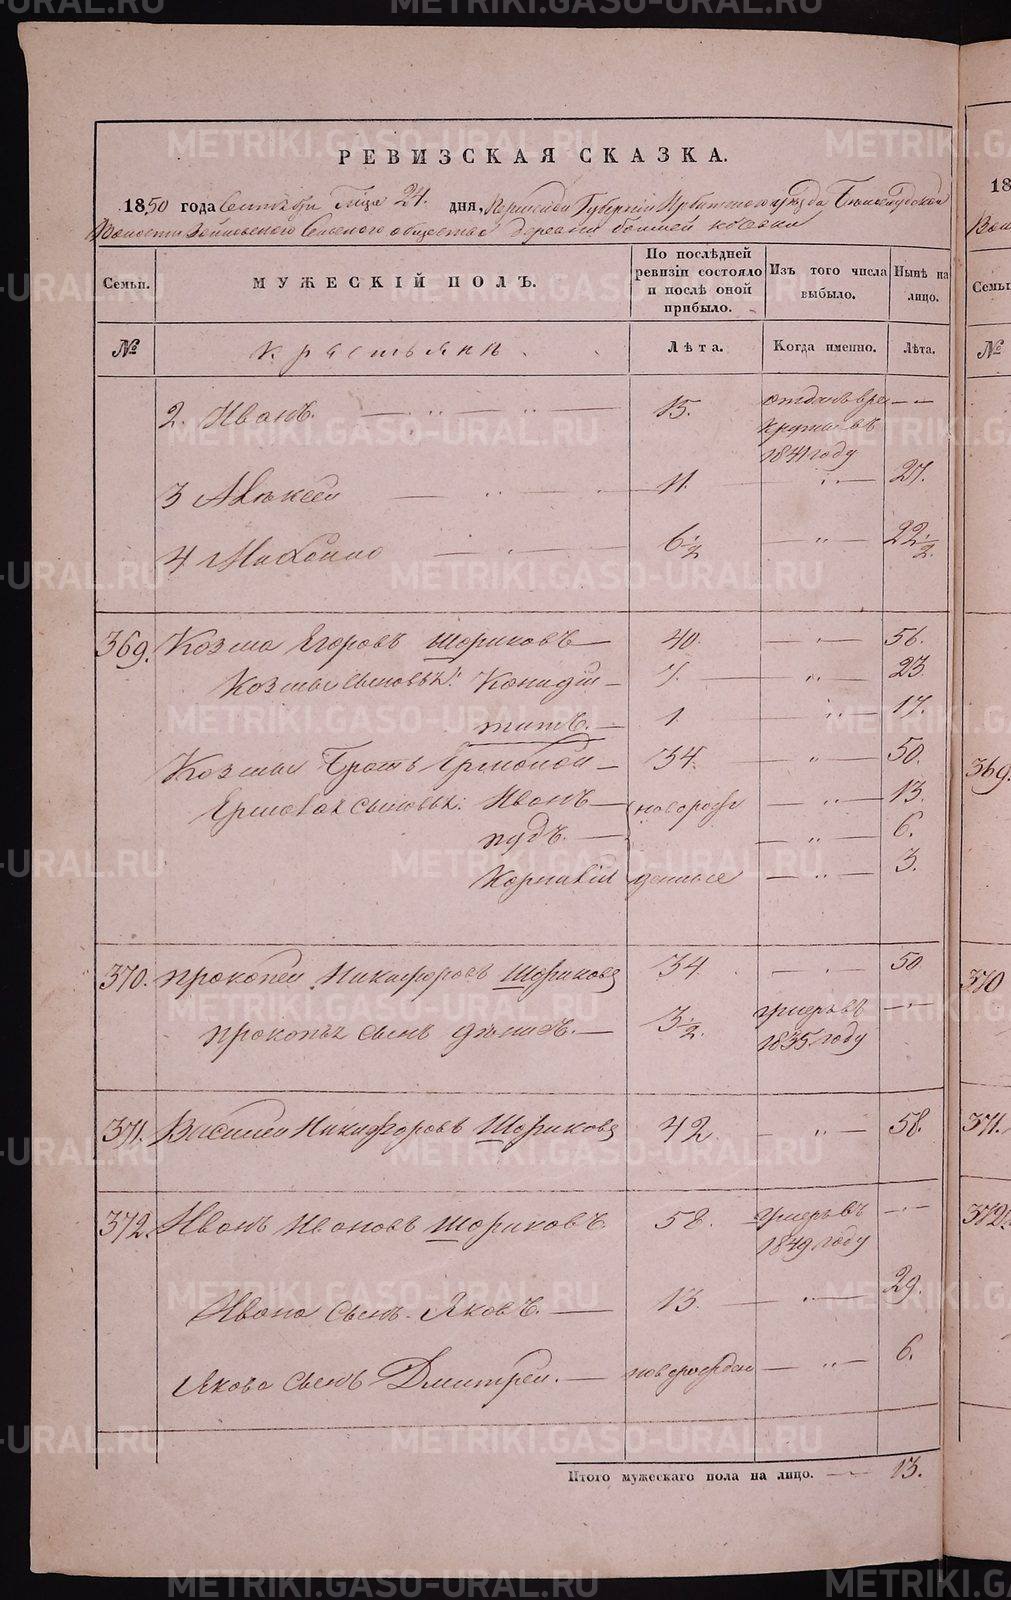 РЕВИЗСКАЯ СКАЗКА.
1850 года Сентября 24 дня, Пермской Губернии Ирбитского уезда
Волости Сельского общества деревни
Семьи. МУЖЕСКІЙ ПОЛЪ. По послѣдней ревизіи состояло и послѣ оной прибыло. Изъ того числа выбыло. Нынѣ на лицо.
№ Крестьяне. Лѣта. Когда именно. Лѣта.
2. Иванъ. 15. отданъ в рекруты въ 1841 году
3 Алексей 11. 27.
4 Михайло 6½ 22½
369. Козма Егоровъ Шориковъ 40. 56.
Козмы сыновья: 7. 23
титъ. 1. 17.
Козмы братъ Ермолай 34. 50.
Ермолая сыновья: Иванъ новорож 13.
пудъ. 6.
Корнилий денные 3.
370. Прокопей Никифоровъ Шориковъ 34. 50
Прокопья сынъ 3½. умеръ въ 1835 году
371. Василей Никифоровъ Шориковъ 42 58.
372. Иванъ Ивановъ Шориковъ 58. умеръ въ 1849 году
Ивана сынъ Яковъ. 13. 29.
Якова сынъ Дмитрей. новорожден 6.
Итого мужескаго пола на лицо. 13.
18
Семьи
№
369.
370
371.
372.
METRIKI.GASO-URAL.RU